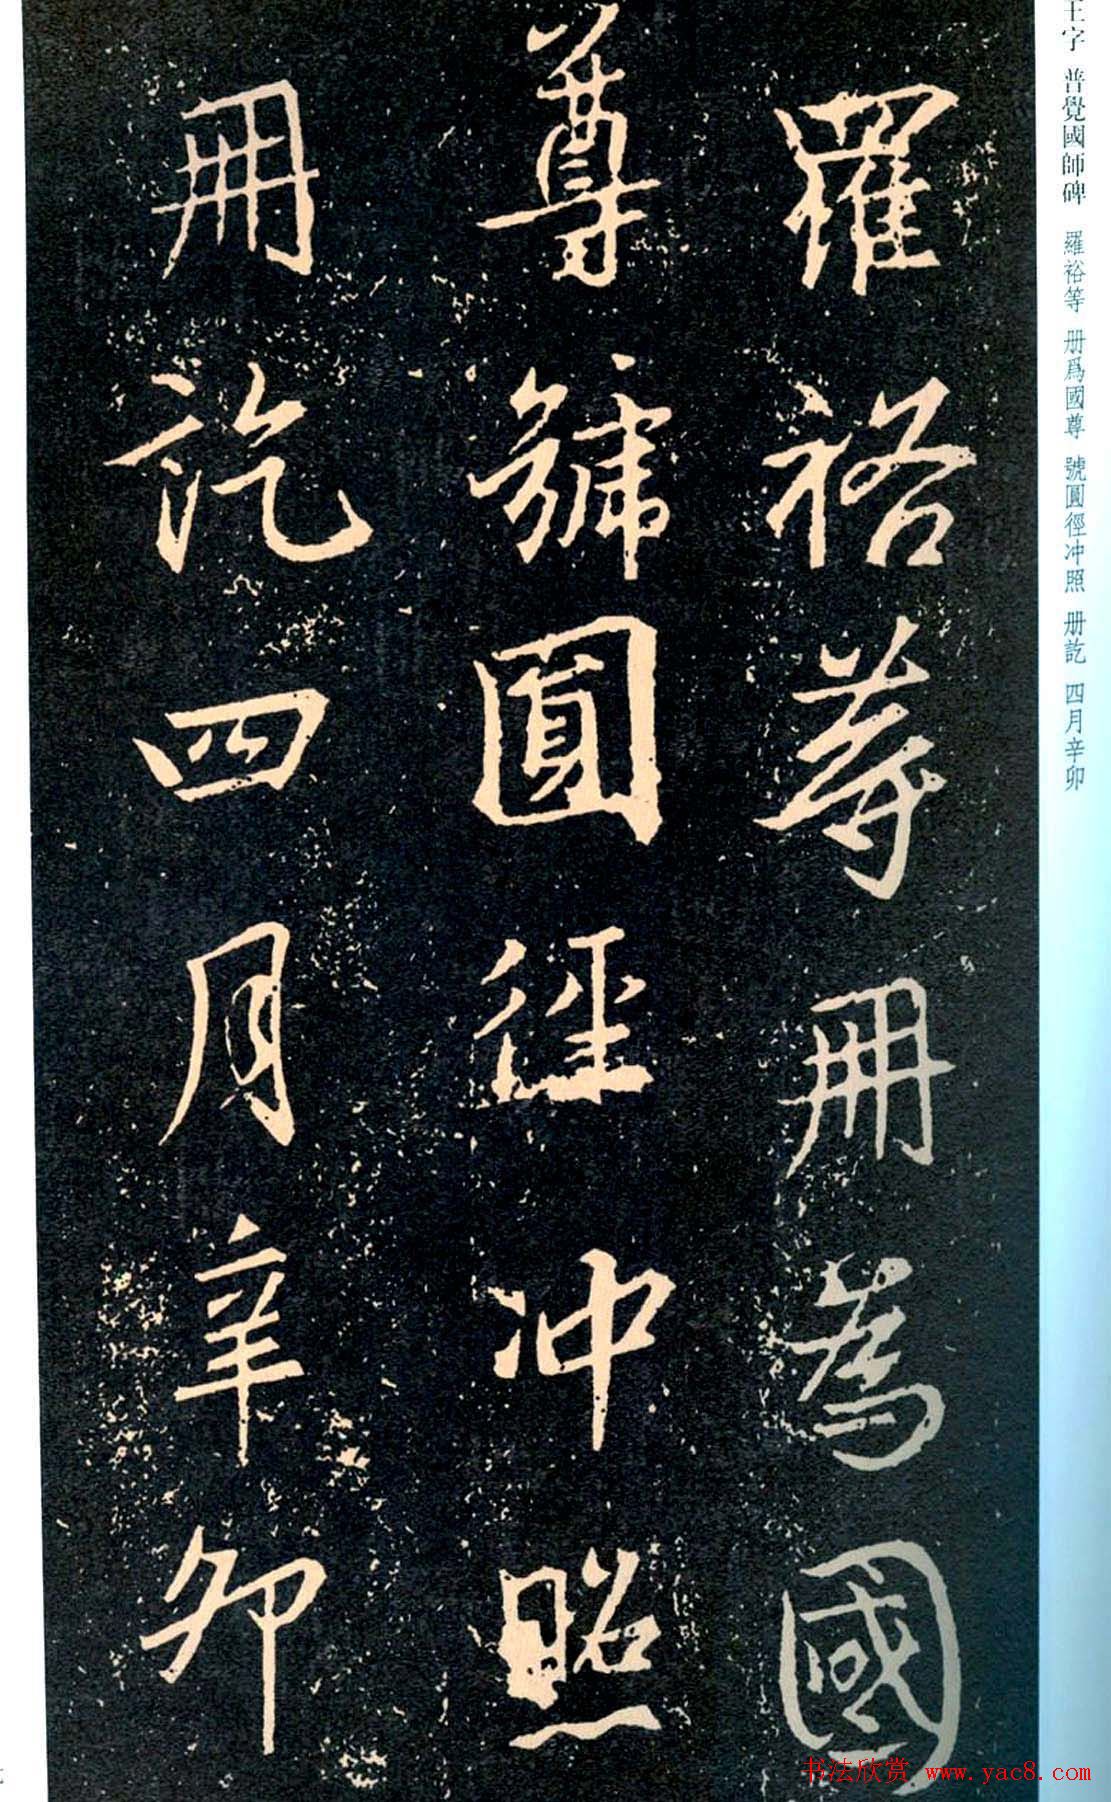 羅裕等冊為國
尊號圓徑冲照
冊訖四月辛卯
王字 普覺國師碑 羅裕等 册爲國尊 號圓徑冲照 册訖 四月辛卯
书法欣赏 www.yac8.com